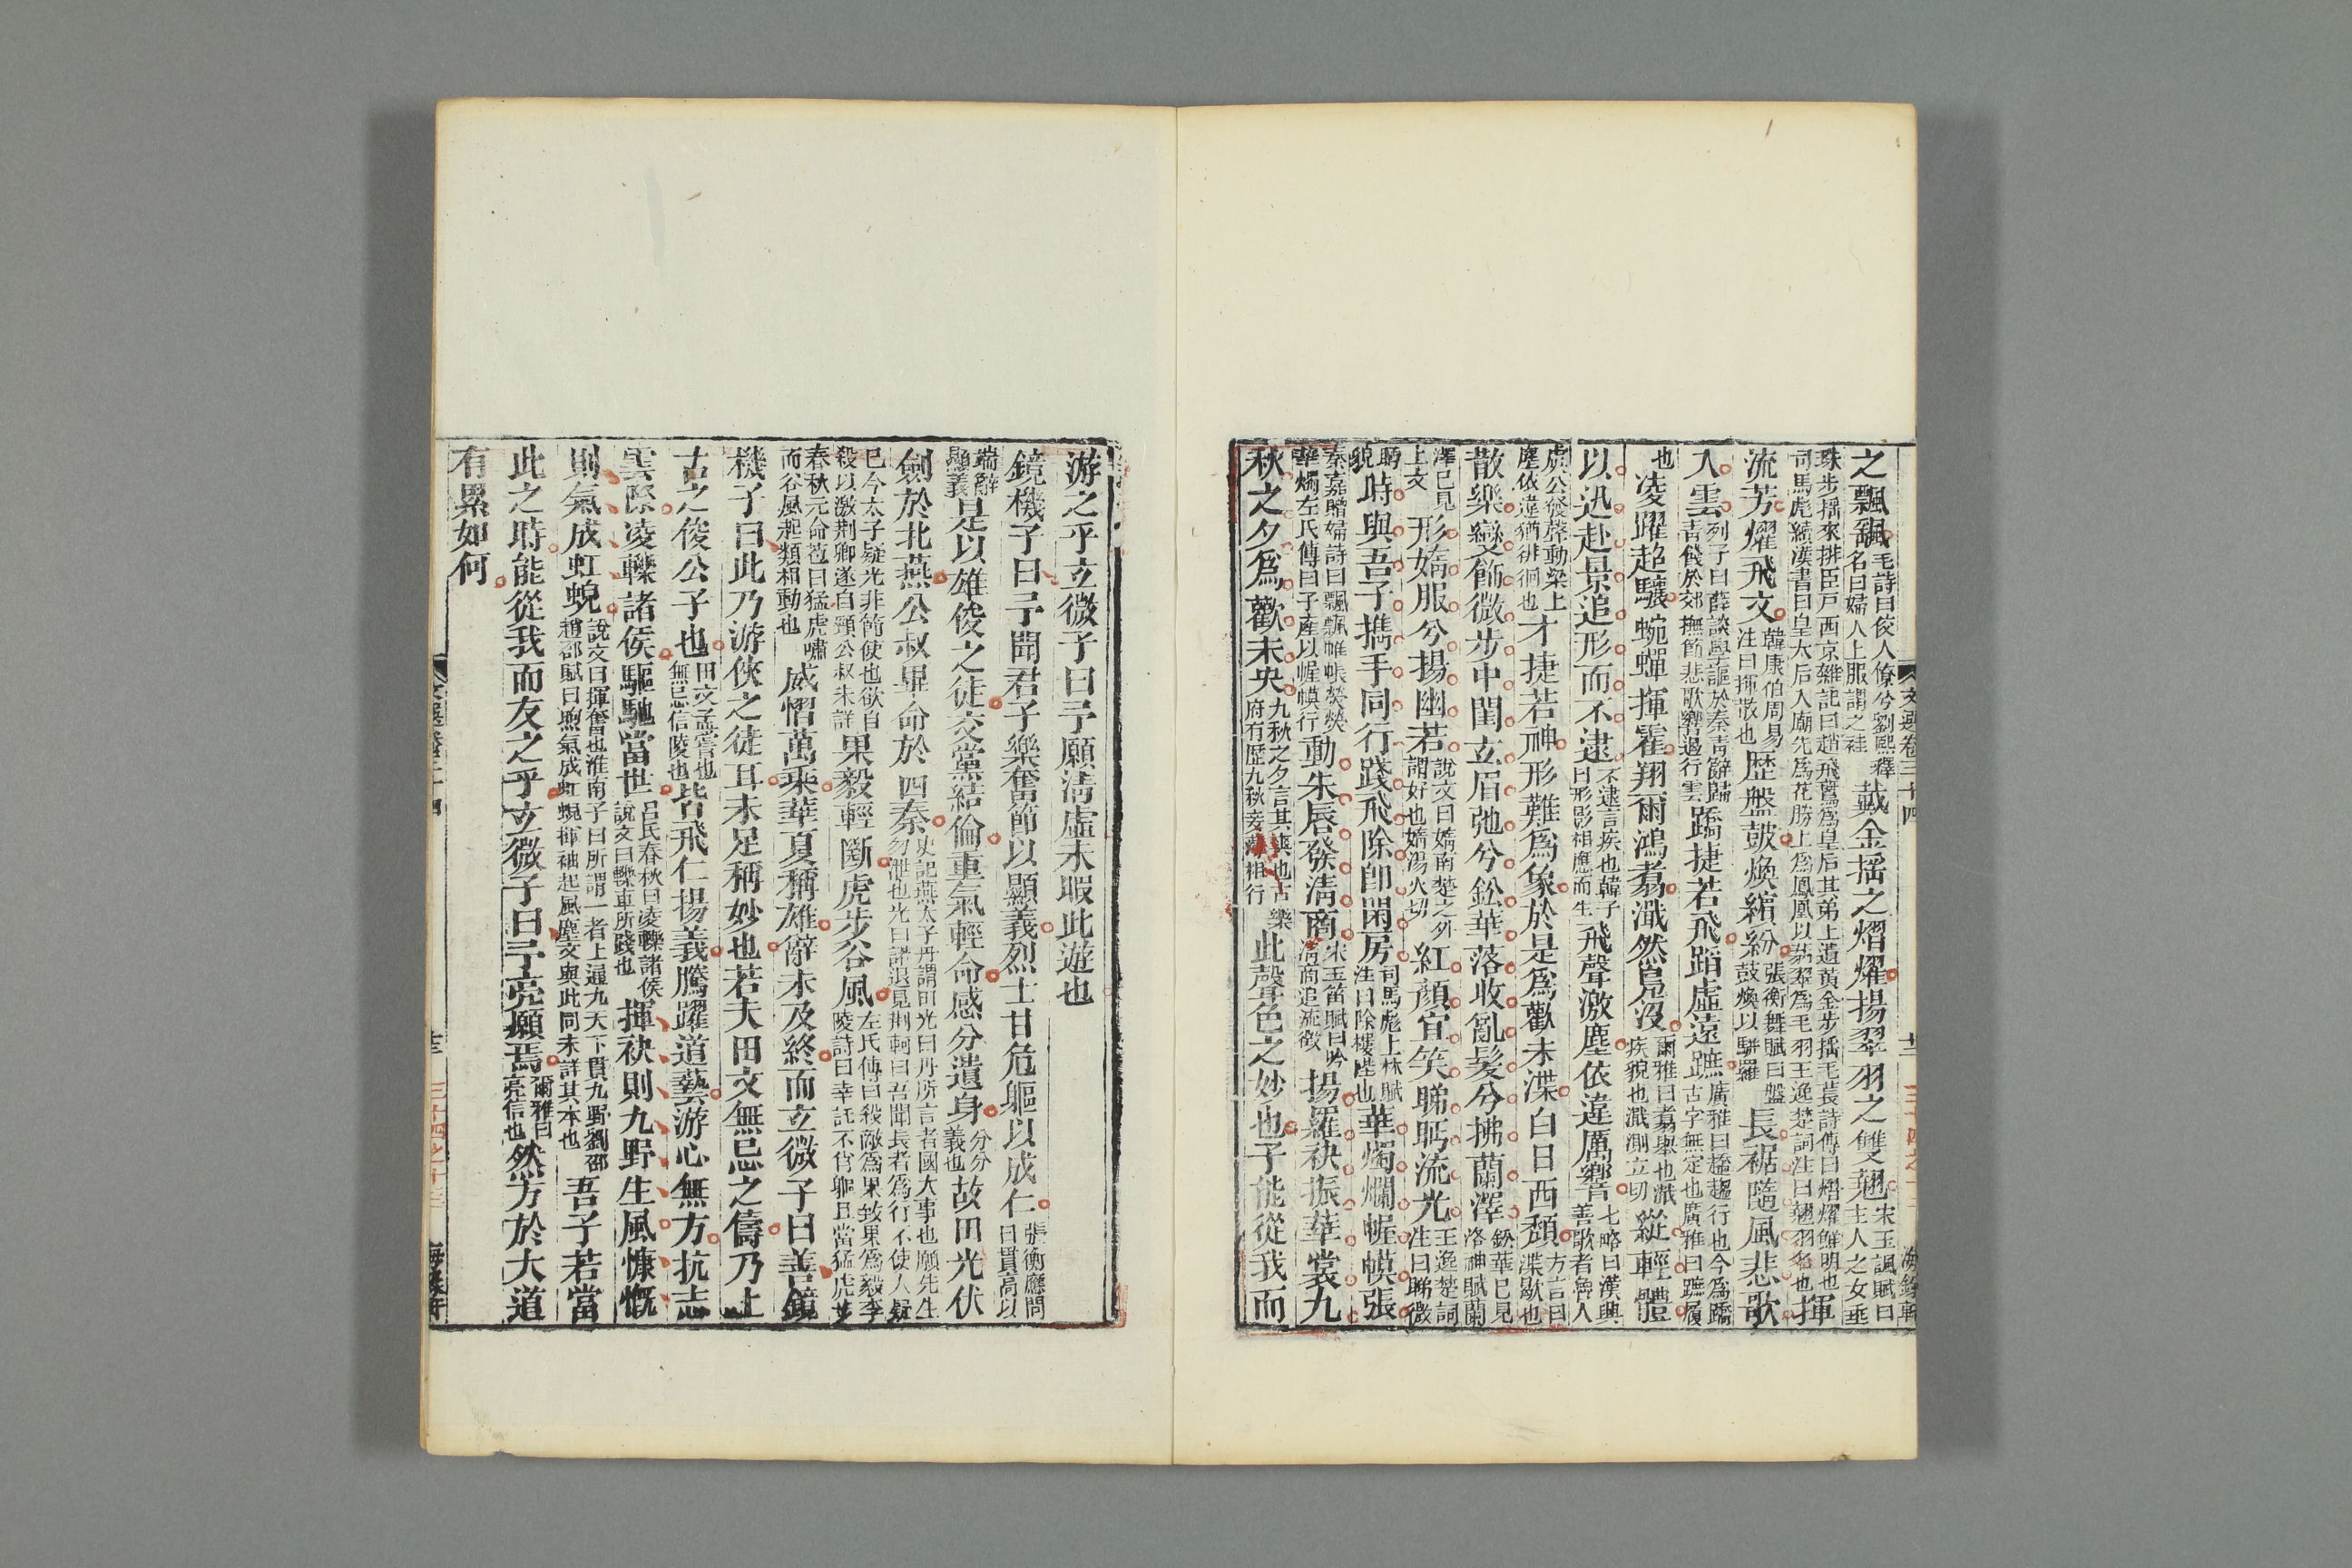 之飄颻毛詩曰佼人僚兮劉熙釋名曰婦人上服謂之袿戴金揺之熠燿揚翠羽之雙翹宋玉諷賦曰主人之女垂
珠步揺來排臣戸西京雜記曰趙飛鷰為皇后其弟上遺黃金步揺毛萇詩傳曰熠燿鮮明也司馬彪續漢書曰皇太后入廟先為花勝上為鳳凰以翡翠為毛羽王逸楚詞注曰翹羽名也揮
流芳燿飛文韓康伯周易注曰揮散也歷盤鼓煥繽紛張衡舞賦曰盤鼓煥以駢羅長裾隨風悲歌
入雲列子曰薛談學謳於秦青辭歸青餞於郊撫節悲歌響遏行雲蹻捷若飛蹈虛遠蹠廣雅曰趫趫行也今為蹻古字無定也廣雅曰蹠履
也凌躍超驤蜿蟬揮霍翔爾鴻翥濈然鳧沒爾雅曰翥舉也濈疾貌也濈測立切縱輕體
以迅赴景追形而不逮不逮言疾也韓子曰形影相應而生飛聲激塵依違厲響七略曰漢興善歌者魯人
虞公發聲動梁上塵依違猶徘徊也才捷若神形難為象於是為歡未渫白日西頹方言曰渫歇也
散樂變飾微步中閨玄眉弛兮鈆華落收亂髮兮拂蘭澤鈆華已見洛神賦蘭
澤已見上文形媠服兮揚幽若說文曰媠南楚之外謂好也媠湯火切紅顏宜笑睇眄流光王逸楚詞注曰睇微
眄貌時與吾子攜手同行踐飛除卽閑房司馬彪上林賦注曰除樓陛也華燭爛幄幙張
秦嘉贈婦詩曰飄飄帷帳熒熒華燭左氏傳曰子產以幄幙行動朱唇發清商宋玉笛賦曰吟清商追流徵揚羅袂振華裳九
秋之夕為歡未央九秋之夕言其爽也古樂府有歷九秋妾薄相行此聲色之妙也子能從我而
游之乎玄微子曰予願清虛未暇此遊也
鏡機子曰予聞君子樂奮節以顯義烈士甘危軀以成仁張衡應問曰貫高以
端辭顯義是以雄俊之徒交黨結倫重氣輕命感分遺身分分義也故田光伏
劍於北燕公叔畢命於西秦史記燕太子丹謂田光曰丹所言者國大事也願先生勿泄也光曰諾退見荆軻曰吾聞長者為行不使人疑
已今太子疑光非節使也欲自殺以激荆卿遂自頸公叔未詳果毅輕斷虎步谷風左氏傳曰殺敵為果致果為毅李陵詩曰幸託不肖軀且當猛虎步
春秋元命苞曰猛虎嘯而谷風起類相動也威慴萬乘華夏稱雄辭未及終而玄微子曰善鏡
機子曰此乃游俠之徒耳未足稱妙也若夫田文無忌之儔乃上
古之俊公子也田文孟嘗也無忌信陵也皆飛仁揚義騰躍道藝游心無方抗志
雲際凌轢諸侯驅馳當世呂氏春秋曰凌轢諸侯說文曰轢車所踐也揮袂則九野生風慷慨
則氣成虹蜺說文曰揮奮也淮南子曰所謂一者上通九天下貫九野劉邵趙都賦曰煦氣成虹蜺揮袖起風塵文與此同未詳其本也吾子若當
此之時能從我而友之乎玄微子曰予亮願焉爾雅曰亮信也然方於大道
有累如何
文選卷三十四
海錄軒